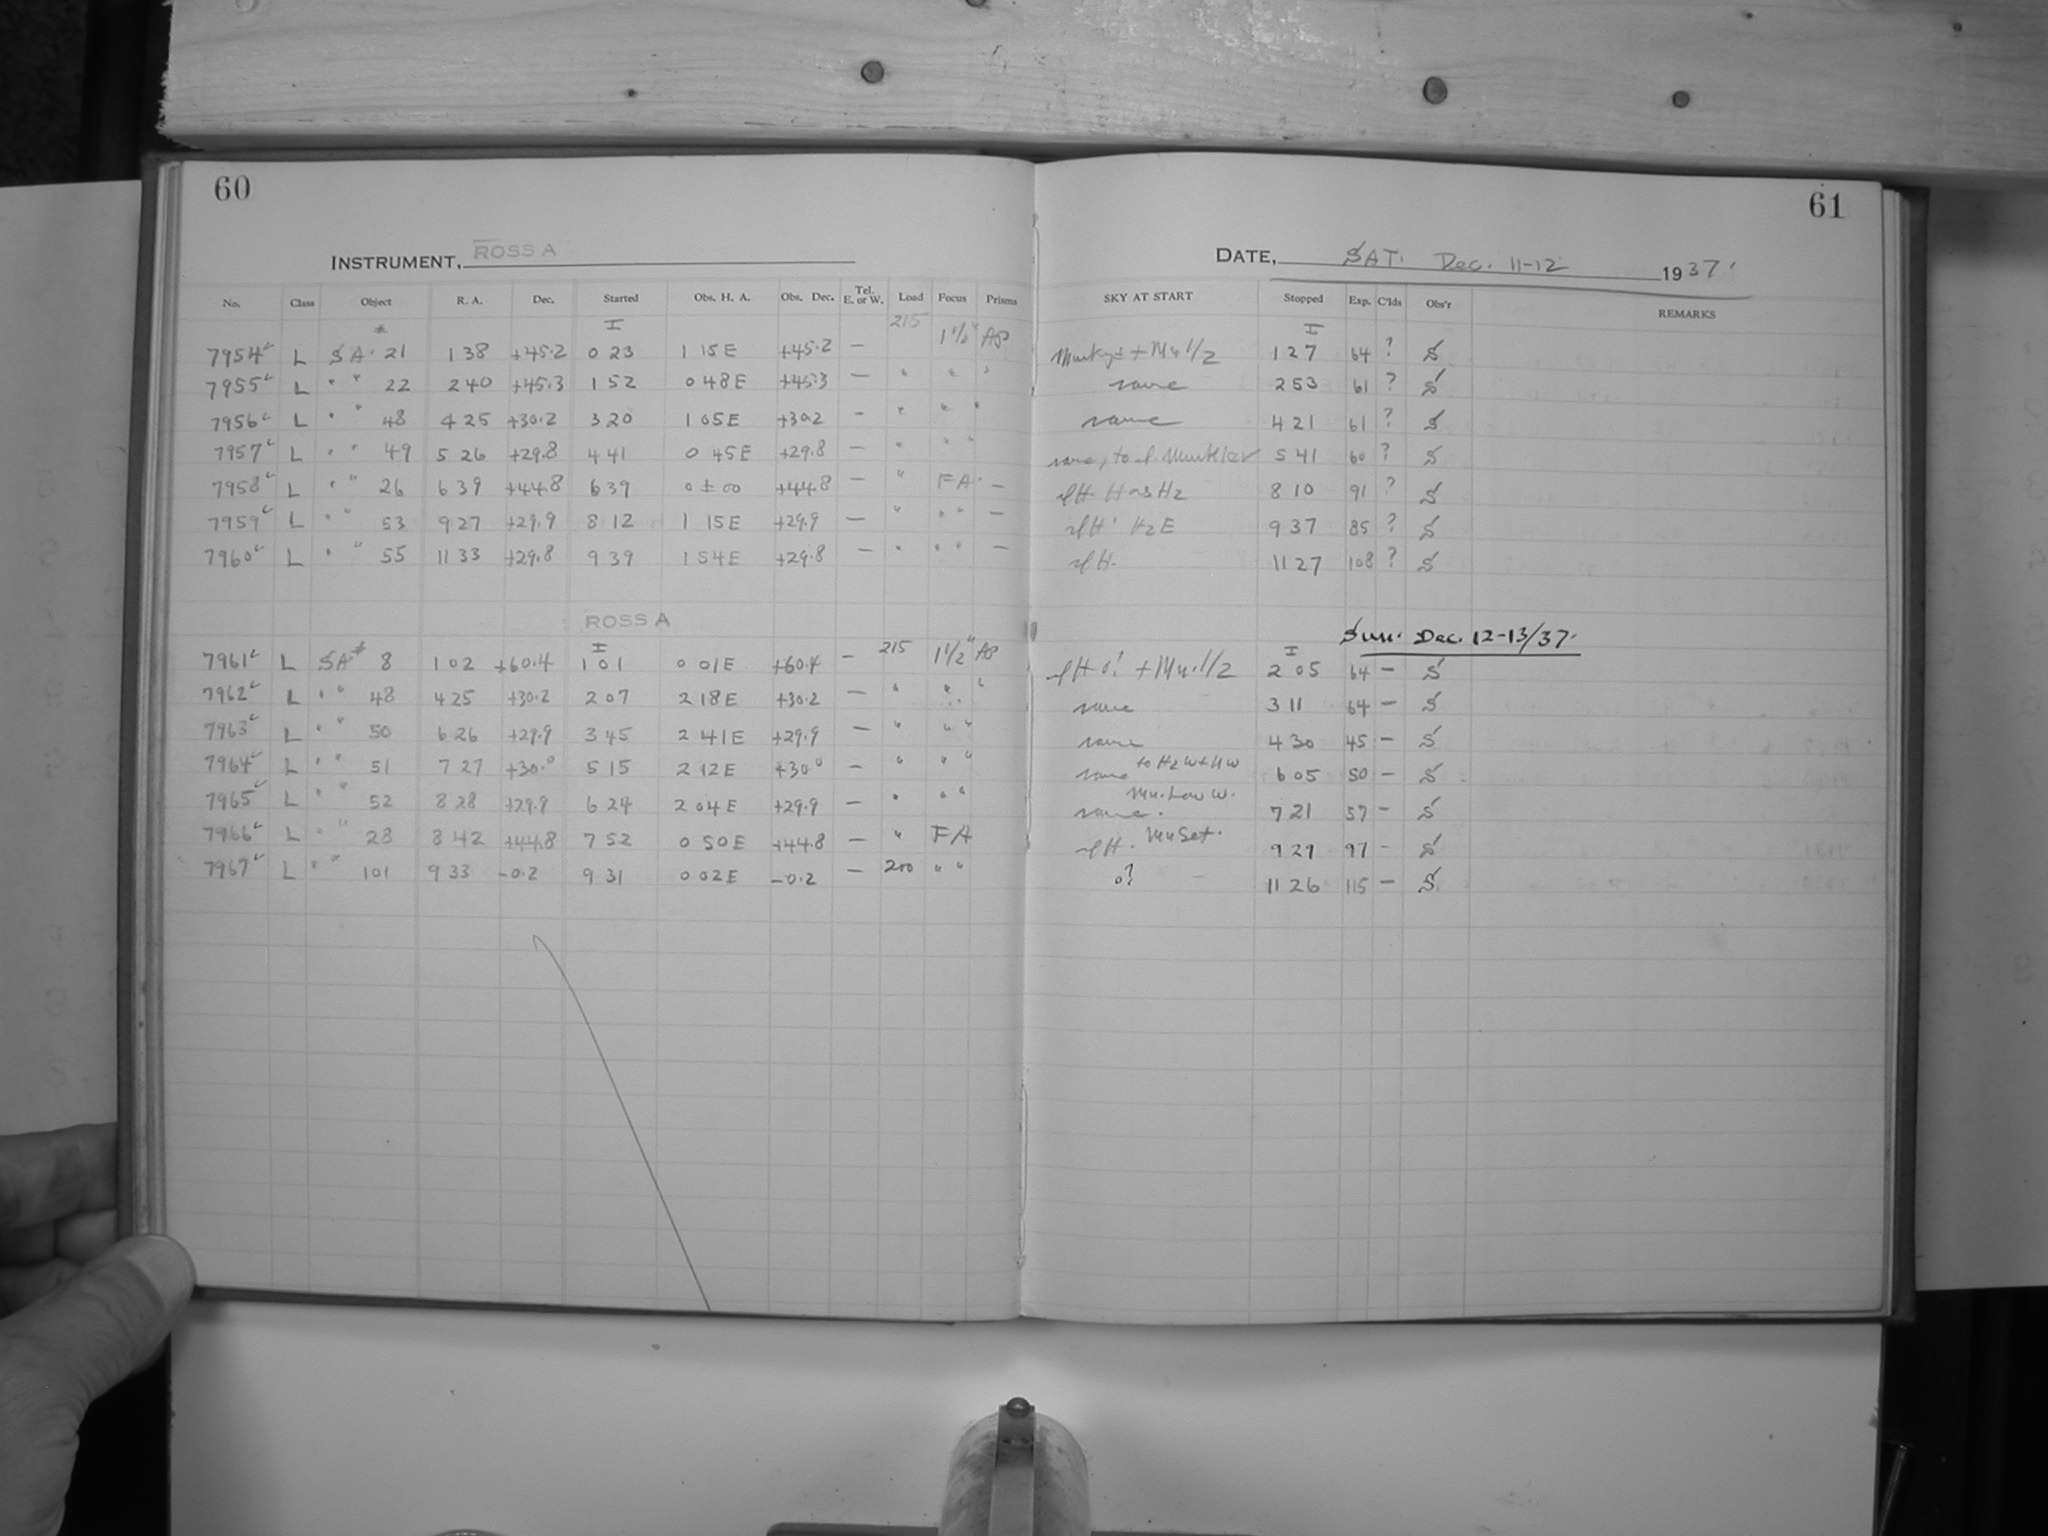 60
INSTRUMENT, ROSS A
No. Class Object R. A. Dec. Started Obs. H. A. Obs. Dec. Tel. E. or W. Load Focus Prisms
7954 L SA. 21 1 38 +45.2 0 23 1 15E +45.2 — 215 1 1/2" AP
7955 L " " 22 2 40 +45.3 1 52 0 48E +45.3 — " " "
7956 L " " 48 4 25 +30.2 3 20 1 05E +30.2 — " " "
7957 L " " 49 5 26 +29.8 4 41 0 45E +29.8 — " " "
7958 L " " 26 6 39 +44.8 6 39 0 ± 00 +44.8 — " FA. —
7959 L " " 53 9 27 +29.9 8 12 1 15E +29.9 — " " " —
7960 L " " 55 11 33 +29.8 9 39 1 54E +29.8 — " " " —
ROSS A
7961 L SA* 8 1 02 +60.4 1 01 0 01E +60.4 — 215 1 1/2" AP
7962 L " " 48 4 25 +30.2 2 07 2 18E +30.2 — " " "
7963 L " " 50 6 26 +29.9 3 45 2 41E +29.9 — " " "
7964 L " " 51 7 27 +30.0 5 15 2 12E +30.0 — " " "
7965 L " " 52 8 28 +29.9 6 24 2 04E +29.9 — " " "
7966 L " " 28 8 42 +44.8 7 52 0 50E +44.8 — " FA
7967 L " " 101 9 33 -0.2 9 31 0 02E -0.2 — 200 " "
61
DATE, SAT. Dec. 11-12 1937.
SKY AT START Stopped Exp. C'lds Obs'r REMARKS
+ Mn 1/2 1 27 64 ? S
same 2 53 61 ? S
same 4 21 61 ? S
same, to 5 41 60 ? S
H2 8 10 91 ? S
H2E 9 37 85 ? S
11 27 108 ? S
Sun. Dec. 12-13/37.
+ Mn. 1/2 2 05 64 — S
same 3 11 64 — S
same 4 30 45 — S
same to H2 W + HW 6 05 50 — S
same. Mn. Low W. 7 21 57 — S
Mn Set. 9 29 97 - S
0? 11 26 115 — S